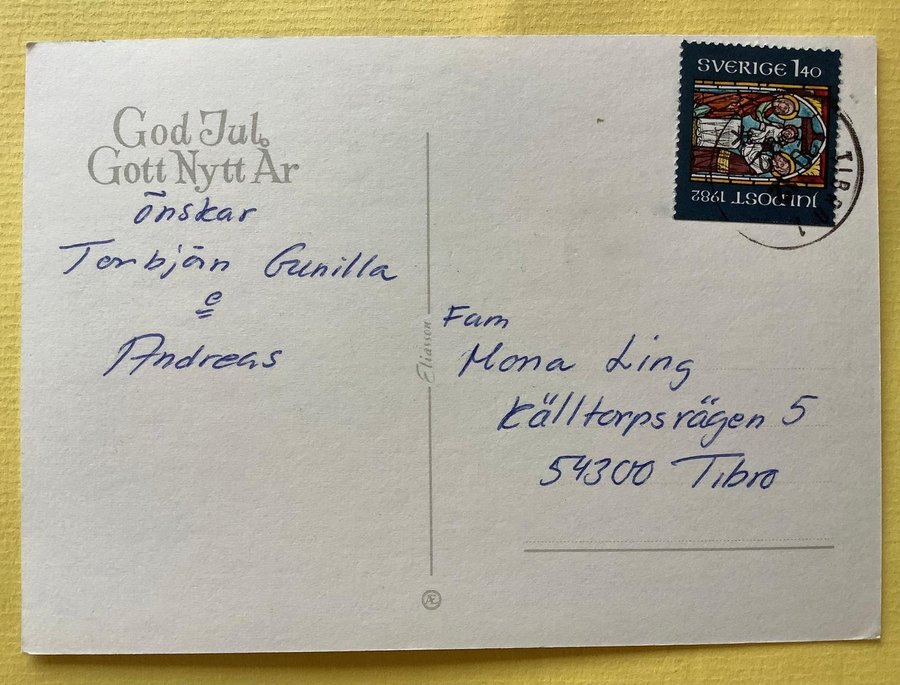 God Jul
Gott Nytt År
önskar
Torbjörn Gunilla
e
Andreas
Eliasson
Æ
SVERIGE 1.40
JULPOST 1982
TIBRO 1
Fam
Mona Ling
Källtorpsvägen 5
54300 Tibro